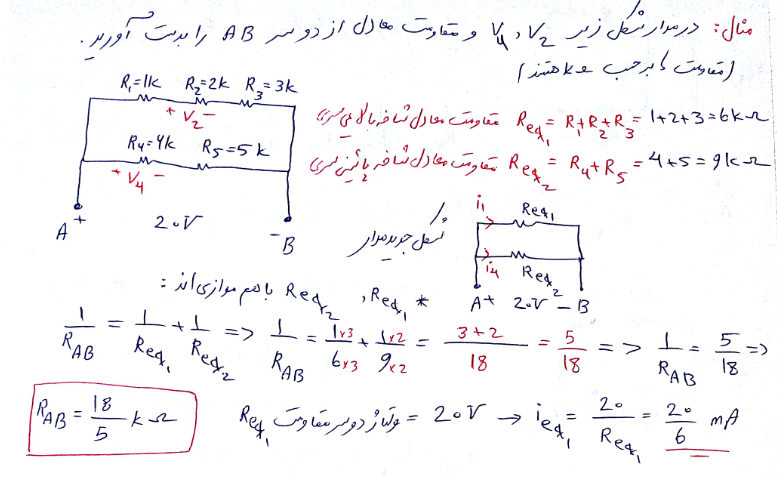 مثال: در مدار شکل زیر V₂ و V₄ و مقاومت معادل از دو سر AB را بدست آورید.
(مقاومت ها بر حسب kΩ هستند)
R₁=1k R₂=2k R₃=3k
+ V₂ −
R₄=4k R₅=5k
+ V₄ −
A + 20V − B
مقاومت معادل شاخه بالایی سری Req₁ = R₁+R₂+R₃ = 1+2+3 = 6kΩ
مقاومت معادل شاخه پائینی سری Req₂ = R₄+R₅ = 4+5 = 9kΩ
شکل جدید مدار
i₁ Req₁
i₄ Req₂
A+ 20V − B
* Req₁ , Req₂ با هم موازی اند :
1/R_AB = 1/Req₁ + 1/Req₂ => 1/R_AB = 1×3/6×3 + 1×2/9×2 = 3+2/18 = 5/18 => 1/R_AB = 5/18 =>
R_AB = 18/5 kΩ
ولتاژ دو سر مقاومت Req₁ = 20V → ieq₁ = 20/Req₁ = 20/6 mA